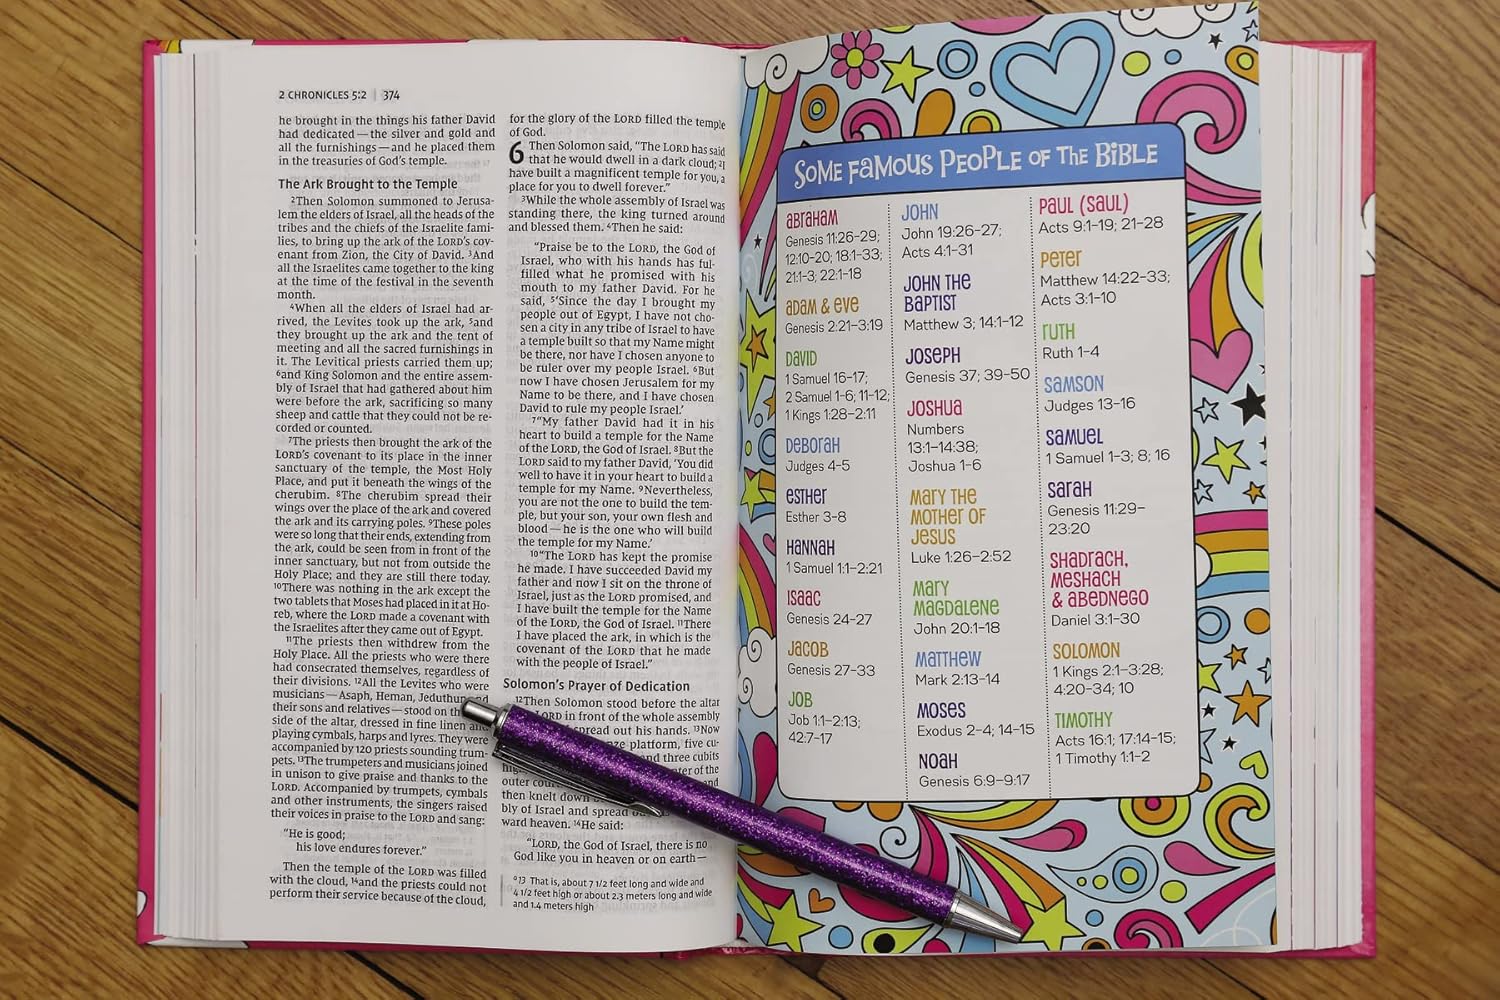 2 CHRONICLES 5:2 | 374
he brought in the things his father David
had dedicated—the silver and gold and
all the furnishings—and he placed them
in the treasuries of God's temple.
The Ark Brought to the Temple
2Then Solomon summoned to Jerusa-
lem the elders of Israel, all the heads of the
tribes and the chiefs of the Israelite fami-
lies, to bring up the ark of the LORD's cov-
enant from Zion, the City of David. 3And
all the Israelites came together to the king
at the time of the festival in the seventh
month.
4When all the elders of Israel had ar-
rived, the Levites took up the ark, 5and
they brought up the ark and the tent of
meeting and all the sacred furnishings in
it. The Levitical priests carried them up;
6and King Solomon and the entire assem-
bly of Israel that had gathered about him
were before the ark, sacrificing so many
sheep and cattle that they could not be re-
corded or counted.
7The priests then brought the ark of the
LORD's covenant to its place in the inner
sanctuary of the temple, the Most Holy
Place, and put it beneath the wings of the
cherubim. 8The cherubim spread their
wings over the place of the ark and covered
the ark and its carrying poles. 9These poles
were so long that their ends, extending from
the ark, could be seen from in front of the
inner sanctuary, but not from outside the
Holy Place; and they are still there today.
10There was nothing in the ark except the
two tablets that Moses had placed in it at Ho-
reb, where the LORD made a covenant with
the Israelites after they came out of Egypt.
11The priests then withdrew from the
Holy Place. All the priests who were there
had consecrated themselves, regardless of
their divisions. 12All the Levites who were
musicians—Asaph, Heman, Jeduthun and
their sons and relatives—stood on the
side of the altar, dressed in fine linen and
playing cymbals, harps and lyres. They were
accompanied by 120 priests sounding trum-
pets. 13The trumpeters and musicians joined
in unison to give praise and thanks to the
LORD. Accompanied by trumpets, cymbals
and other instruments, the singers raised
their voices in praise to the LORD and sang:
"He is good;
his love endures forever."
Then the temple of the LORD was filled
with the cloud, 14and the priests could not
perform their service because of the cloud,
for the glory of the LORD filled the temple
of God.
6 Then Solomon said, "The LORD has said
that he would dwell in a dark cloud; 2I
have built a magnificent temple for you, a
place for you to dwell forever."
3While the whole assembly of Israel was
standing there, the king turned around
and blessed them. 4Then he said:
"Praise be to the LORD, the God of
Israel, who with his hands has ful-
filled what he promised with his
mouth to my father David. For he
said, 5'Since the day I brought my
people out of Egypt, I have not cho-
sen a city in any tribe of Israel to have
a temple built so that my Name might
be there, nor have I chosen anyone to
be ruler over my people Israel. 6But
now I have chosen Jerusalem for my
Name to be there, and I have chosen
David to rule my people Israel.'
7"My father David had it in his
heart to build a temple for the Name
of the LORD, the God of Israel. 8But the
LORD said to my father David, 'You did
well to have it in your heart to build a
temple for my Name. 9Nevertheless,
you are not the one to build the tem-
ple, but your son, your own flesh and
blood—he is the one who will build
the temple for my Name.'
10"The LORD has kept the promise
he made. I have succeeded David my
father and now I sit on the throne of
Israel, just as the LORD promised, and
I have built the temple for the Name
of the LORD, the God of Israel. 11There
I have placed the ark, in which is the
covenant of the LORD that he made
with the people of Israel."
Solomon's Prayer of Dedication
12Then Solomon stood before the altar
LORD in front of the whole assembly
spread out his hands. 13Now
platform, five cu-
and three cubits
of the
outer and
then knelt down
bly of Israel and spread
ward heaven. 14He said:
"LORD, the God of Israel, there is no
God like you in heaven or on earth—
a 13 That is, about 7 1/2 feet long and wide and
4 1/2 feet high or about 2.3 meters long and wide
and 1.4 meters high
SOME FAMOUS PEOPLE OF THE BIBLE
ABRAHAM
Genesis 11:26–29;
12:10–20; 18:1–33;
21:1–3; 22:1–18
ADAM & EVE
Genesis 2:21–3:19
DAVID
1 Samuel 16–17;
2 Samuel 1–6; 11–12;
1 Kings 1:28–2:11
DEBORAH
Judges 4–5
ESTHER
Esther 3–8
HANNAH
1 Samuel 1:1–2:21
ISAAC
Genesis 24–27
JACOB
Genesis 27–33
JOB
Job 1:1–2:13;
42:7–17
JOHN
John 19:26–27;
Acts 4:1–31
JOHN THE
BAPTIST
Matthew 3; 14:1–12
JOSEPH
Genesis 37; 39–50
JOSHUA
Numbers
13:1–14:38;
Joshua 1–6
MARY THE
MOTHER OF
JESUS
Luke 1:26–2:52
MARY
MAGDALENE
John 20:1–18
MATTHEW
Mark 2:13–14
MOSES
Exodus 2–4; 14–15
NOAH
Genesis 6:9–9:17
PAUL (SAUL)
Acts 9:1–19; 21–28
PETER
Matthew 14:22–33;
Acts 3:1–10
RUTH
Ruth 1–4
SAMSON
Judges 13–16
SAMUEL
1 Samuel 1–3; 8; 16
SARAH
Genesis 11:29–
23:20
SHADRACH,
MESHACH
& ABEDNEGO
Daniel 3:1–30
SOLOMON
1 Kings 2:1–3:28;
4:20–34; 10
TIMOTHY
Acts 16:1; 17:14–15;
1 Timothy 1:1–2